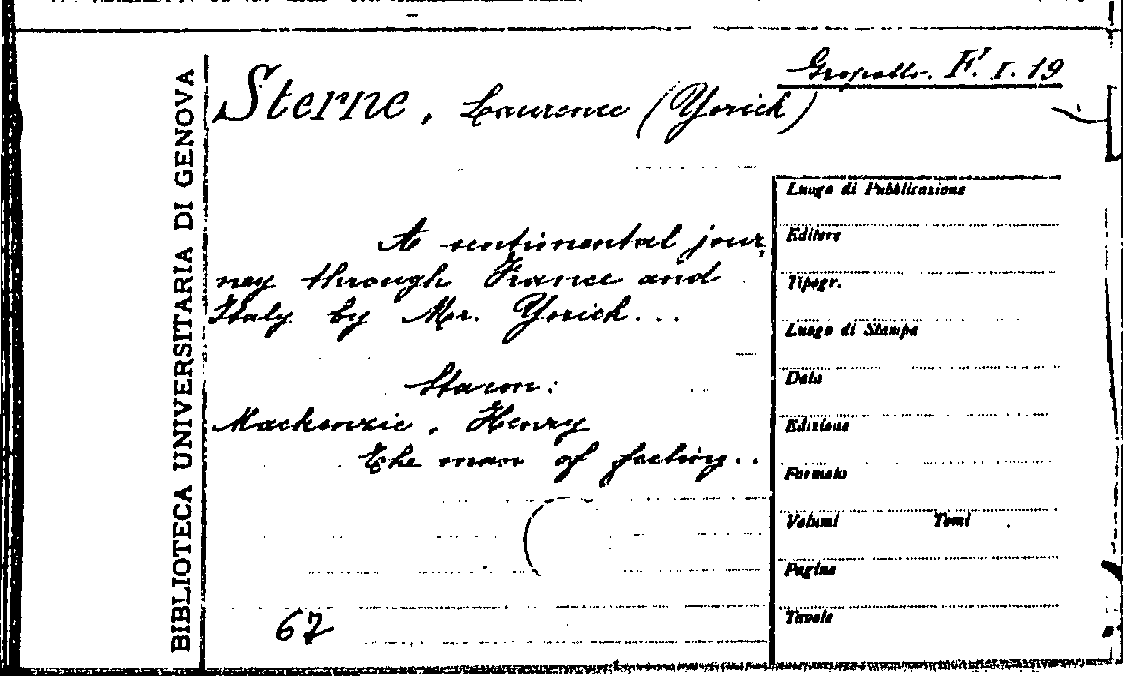 Gropallo. F. I. 19
Sterne, Laurence (Yorick)
A sentimental jour
ney through France and
Italy by Mr. Yorick...
Mackenzie, Henry
The man of feeling..
67
BIBLIOTECA UNIVERSITARIA DI GENOVA
Luogo di Pubblicazione
Editore
Tipogr.
Luogo di Stampa
Data
Edizione
Formato
Volumi Tomi
Pagine
Tavole